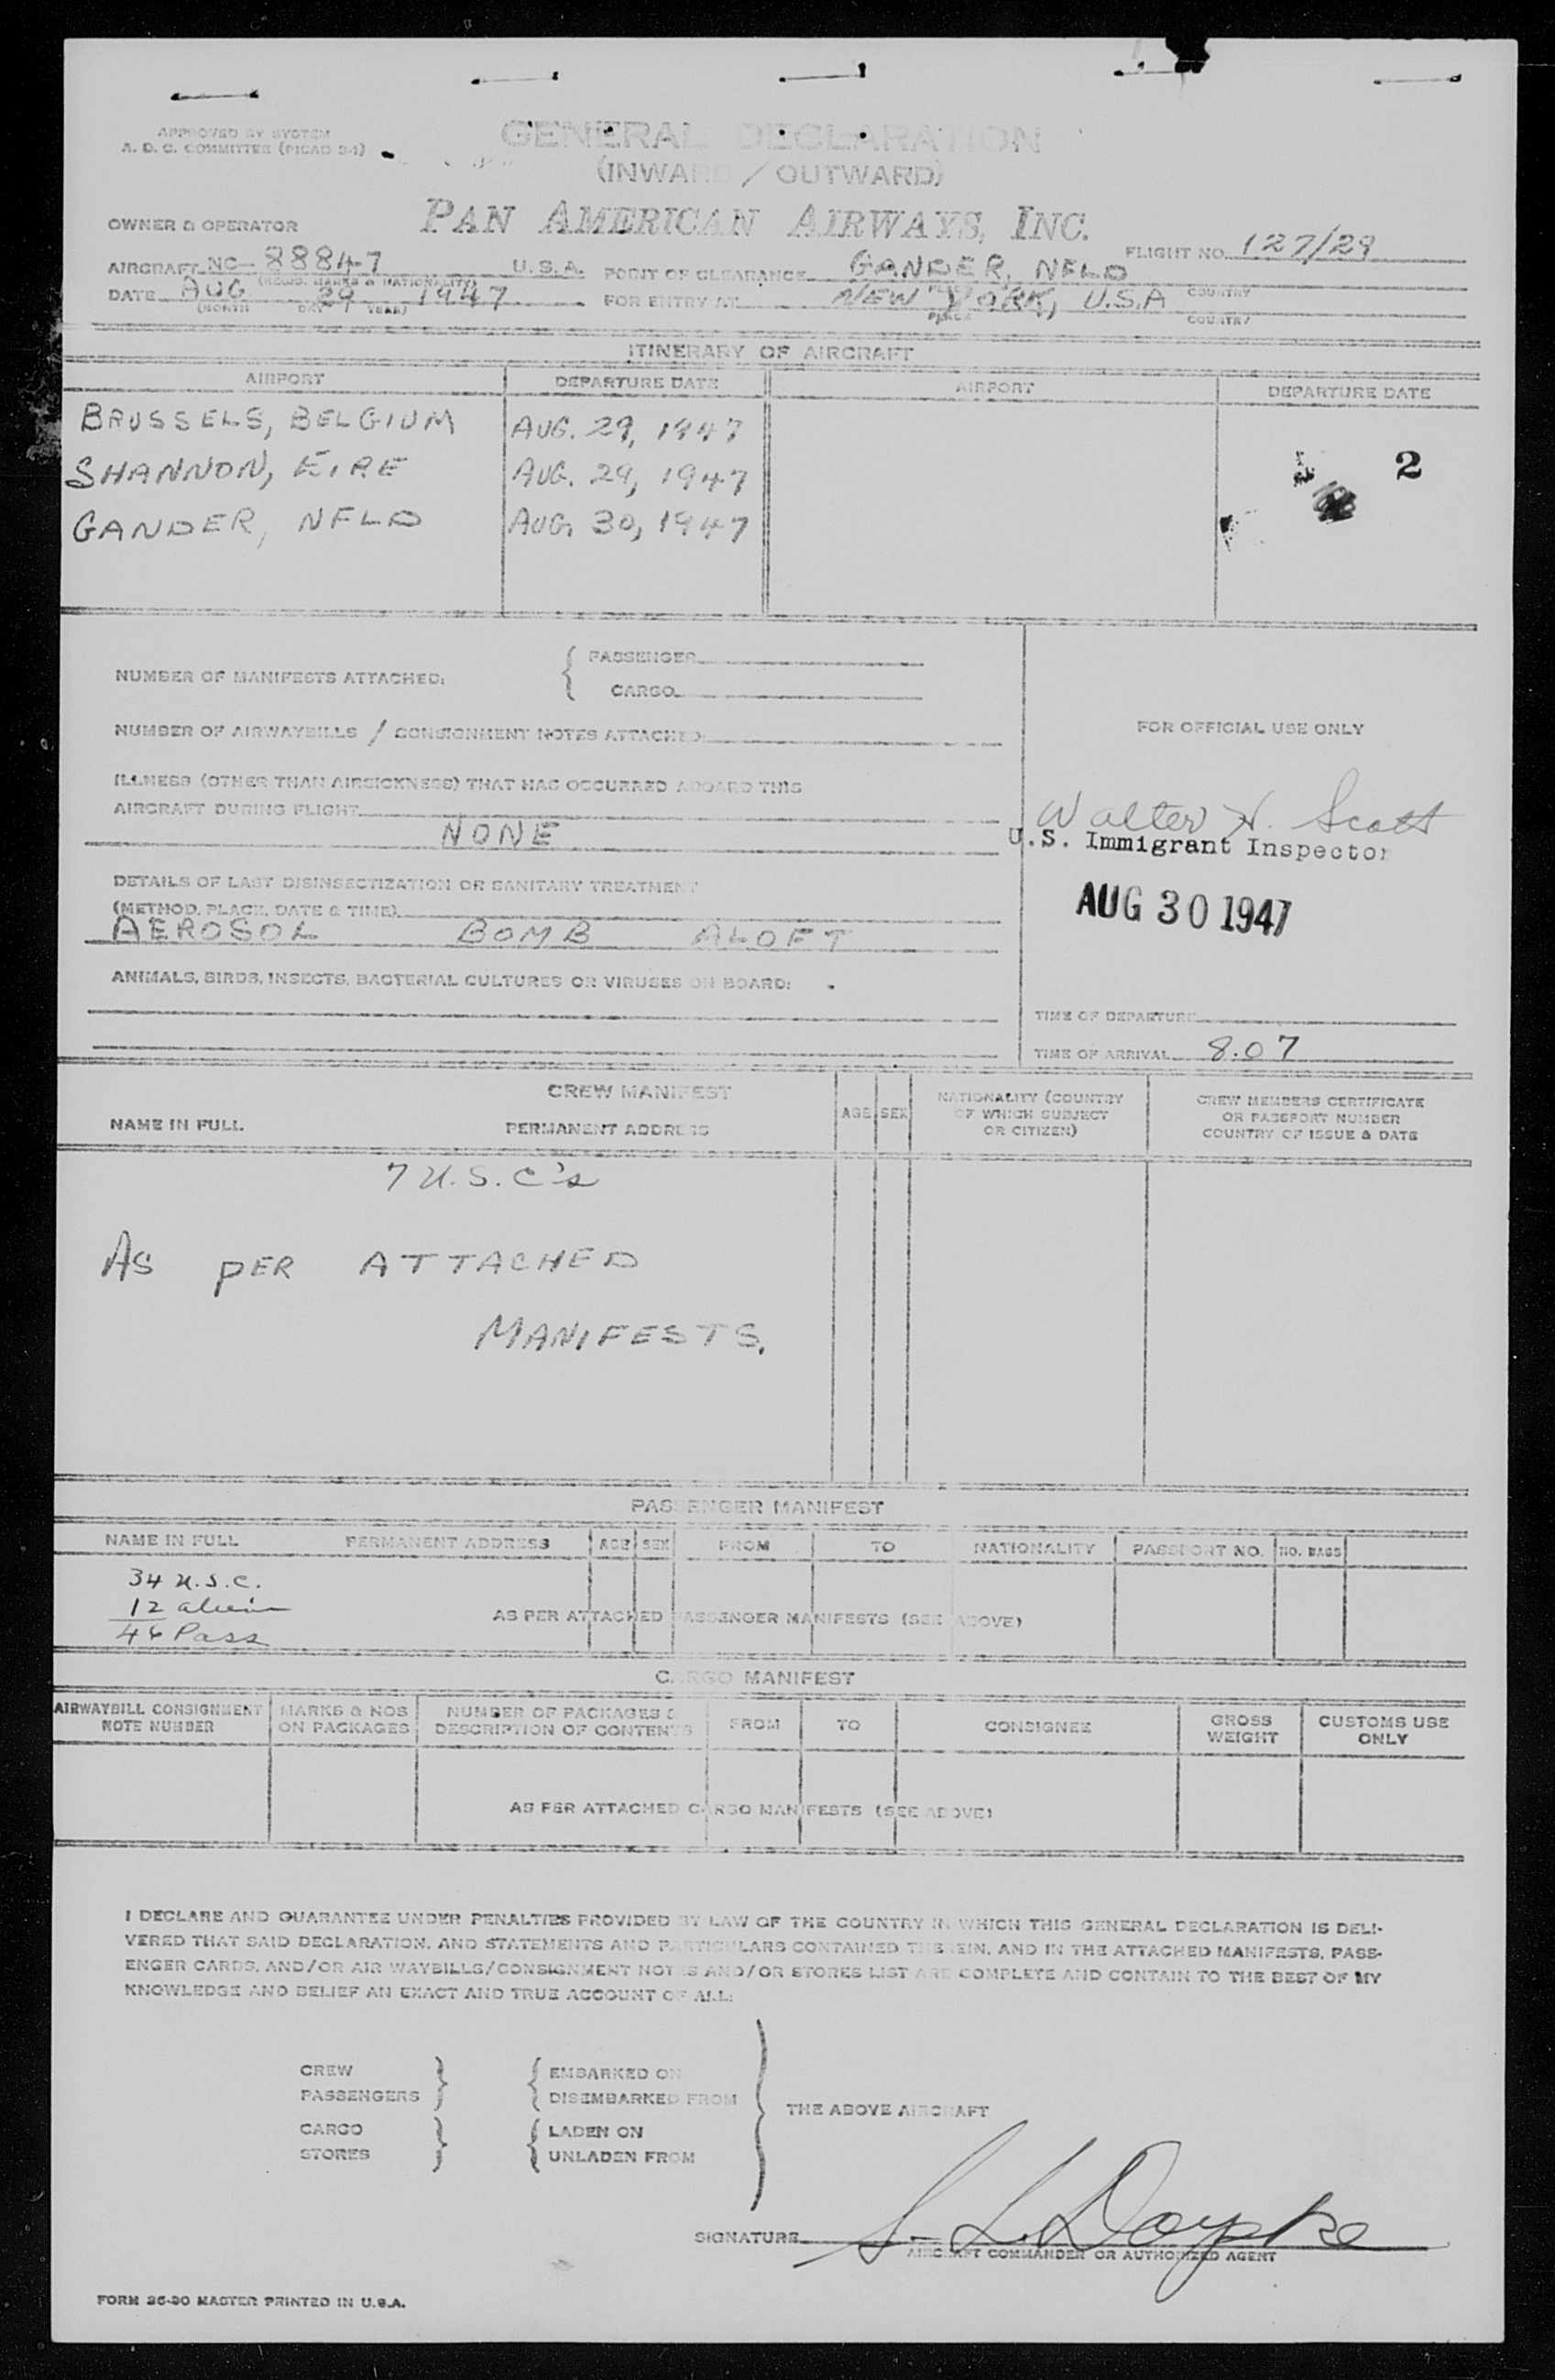 APPROVED BY SYSTEM
A. D. C. COMMITTEE (PICAO 3-1)
GENERAL DECLARATION
(INWARD / OUTWARD)
OWNER & OPERATOR
PAN AMERICAN AIRWAYS, INC.
FLIGHT NO. 127/29
AIRCRAFT NC- 88847 U.S.A. POINT OF CLEARANCE GANDER, NFLD
(REGD. MARKS & NATIONALITY) PLACE COUNTRY
DATE AUG 29 1947 FOR ENTRY AT NEW YORK, U.S.A
(MONTH DAY YEAR) PLACE COUNTRY
ITINERARY OF AIRCRAFT
AIRPORT DEPARTURE DATE AIRPORT DEPARTURE DATE
BRUSSELS, BELGIUM AUG. 29, 1947
SHANNON, EIRE AUG. 29, 1947 2
GANDER, NFLD AUG. 30, 1947
NUMBER OF MANIFESTS ATTACHED: PASSENGER
CARGO
NUMBER OF AIRWAYBILLS / CONSIGNMENT NOTES ATTACHED:
FOR OFFICIAL USE ONLY
ILLNESS (OTHER THAN AIRSICKNESS) THAT HAS OCCURRED ABOARD THIS
AIRCRAFT DURING FLIGHT
NONE
Walter H. Scott
U.S. Immigrant Inspector
AUG 30 1947
DETAILS OF LAST DISINSECTIZATION OR SANITARY TREATMENT
(METHOD, PLACE, DATE & TIME)
AEROSOL BOMB ALOFT
ANIMALS, BIRDS, INSECTS, BACTERIAL CULTURES OR VIRUSES ON BOARD:
TIME OF DEPARTURE
TIME OF ARRIVAL 8.07
CREW MANIFEST
NAME IN FULL PERMANENT ADDRESS AGE SEX NATIONALITY (COUNTRY OF WHICH SUBJECT OR CITIZEN) CREW MEMBERS CERTIFICATE OR PASSPORT NUMBER COUNTRY OF ISSUE & DATE
7 U.S.C's
AS PER ATTACHED
MANIFESTS.
PASSENGER MANIFEST
NAME IN FULL PERMANENT ADDRESS AGE SEX FROM TO NATIONALITY PASSPORT NO. NO. BAGS
34 U.S.C.
12 alien
46 Pass
AS PER ATTACHED PASSENGER MANIFESTS (SEE ABOVE)
CARGO MANIFEST
AIRWAYBILL CONSIGNMENT NOTE NUMBER MARKS & NOS ON PACKAGES NUMBER OF PACKAGES & DESCRIPTION OF CONTENTS FROM TO CONSIGNEE GROSS WEIGHT CUSTOMS USE ONLY
AS PER ATTACHED CARGO MANIFESTS (SEE ABOVE)
I DECLARE AND GUARANTEE UNDER PENALTIES PROVIDED BY LAW OF THE COUNTRY IN WHICH THIS GENERAL DECLARATION IS DELI-
VERED THAT SAID DECLARATION, AND STATEMENTS AND PARTICULARS CONTAINED THEREIN, AND IN THE ATTACHED MANIFESTS, PASS-
ENGER CARDS, AND/OR AIR WAYBILLS/CONSIGNMENT NOTES AND/OR STORES LIST ARE COMPLETE AND CONTAIN TO THE BEST OF MY
KNOWLEDGE AND BELIEF AN EXACT AND TRUE ACCOUNT OF ALL:
CREW EMBARKED ON
PASSENGERS DISEMBARKED FROM
THE ABOVE AIRCRAFT
CARGO LADEN ON
STORES UNLADEN FROM
SIGNATURE
AIRCRAFT COMMANDER OR AUTHORIZED AGENT
FORM 36-90 MASTER PRINTED IN U.S.A.